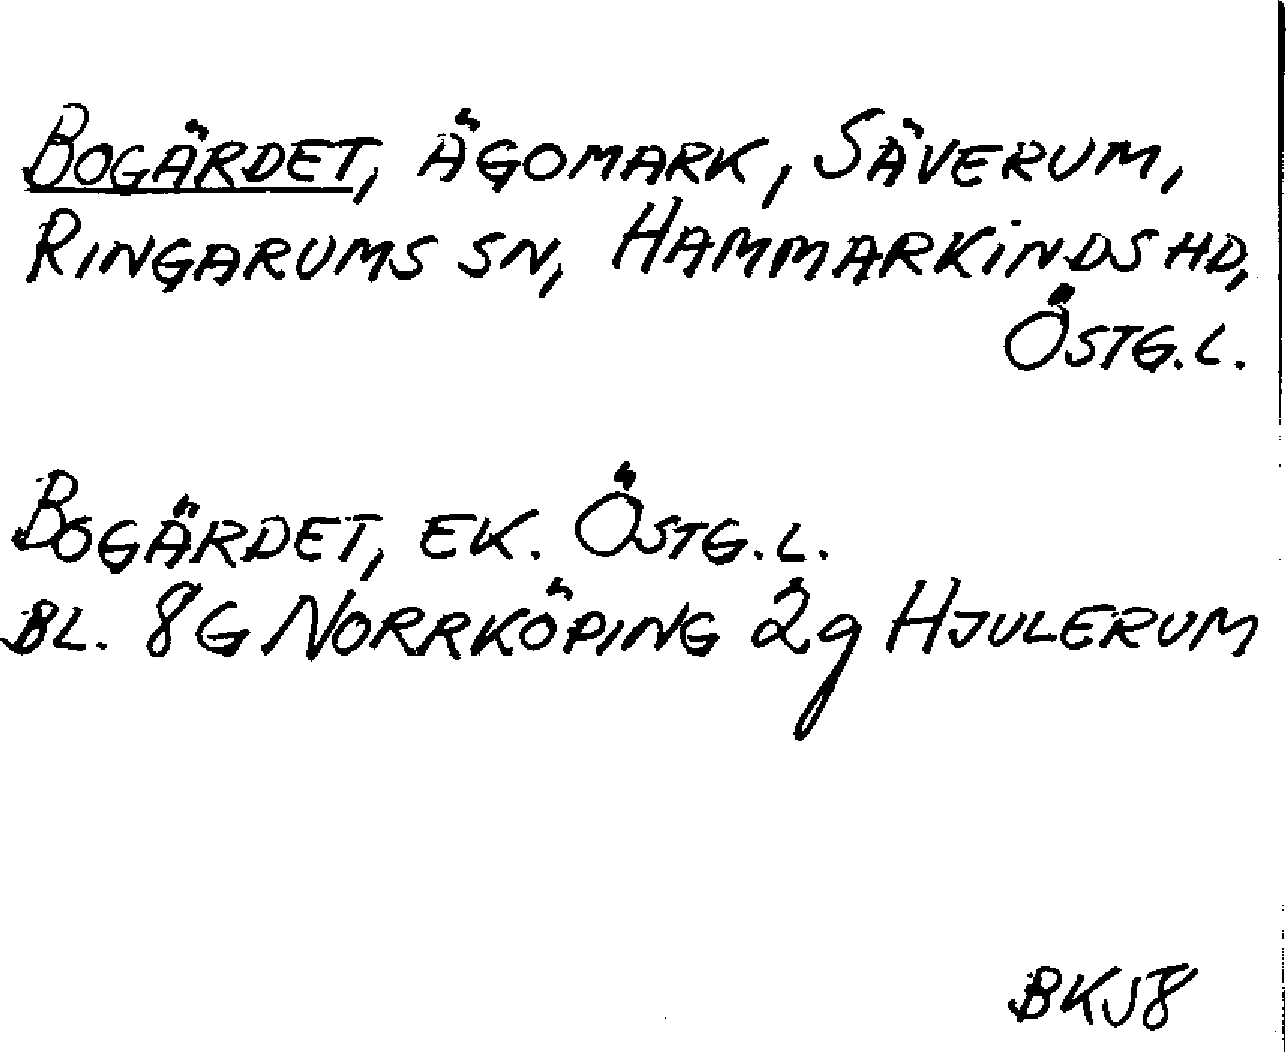 BOGÄRDET, ÄGOMARK, SÄVERUM,
RINGARUMS SN, HAMMARKINDS HD,
ÖSTG.L.
BOGÄRDET, EK. ÖSTG.L.
BL. 8G NORRKÖPING 2g HJULERUM
BKJ8